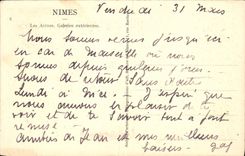 NIMES
Les Arènes. Galeries extérieures.
Vendredi 31 Mars
Nous sommes venus jusqu'ici
en car de Marseille où nous
sommes depuis quelques jours.
Serons de retour sans doute
Lundi à Nice. J'espère que
nous aurons le plaisir de te
voir et de te savoir tout à fait
remise
amitiés de Jean et mes meilleurs
baisers